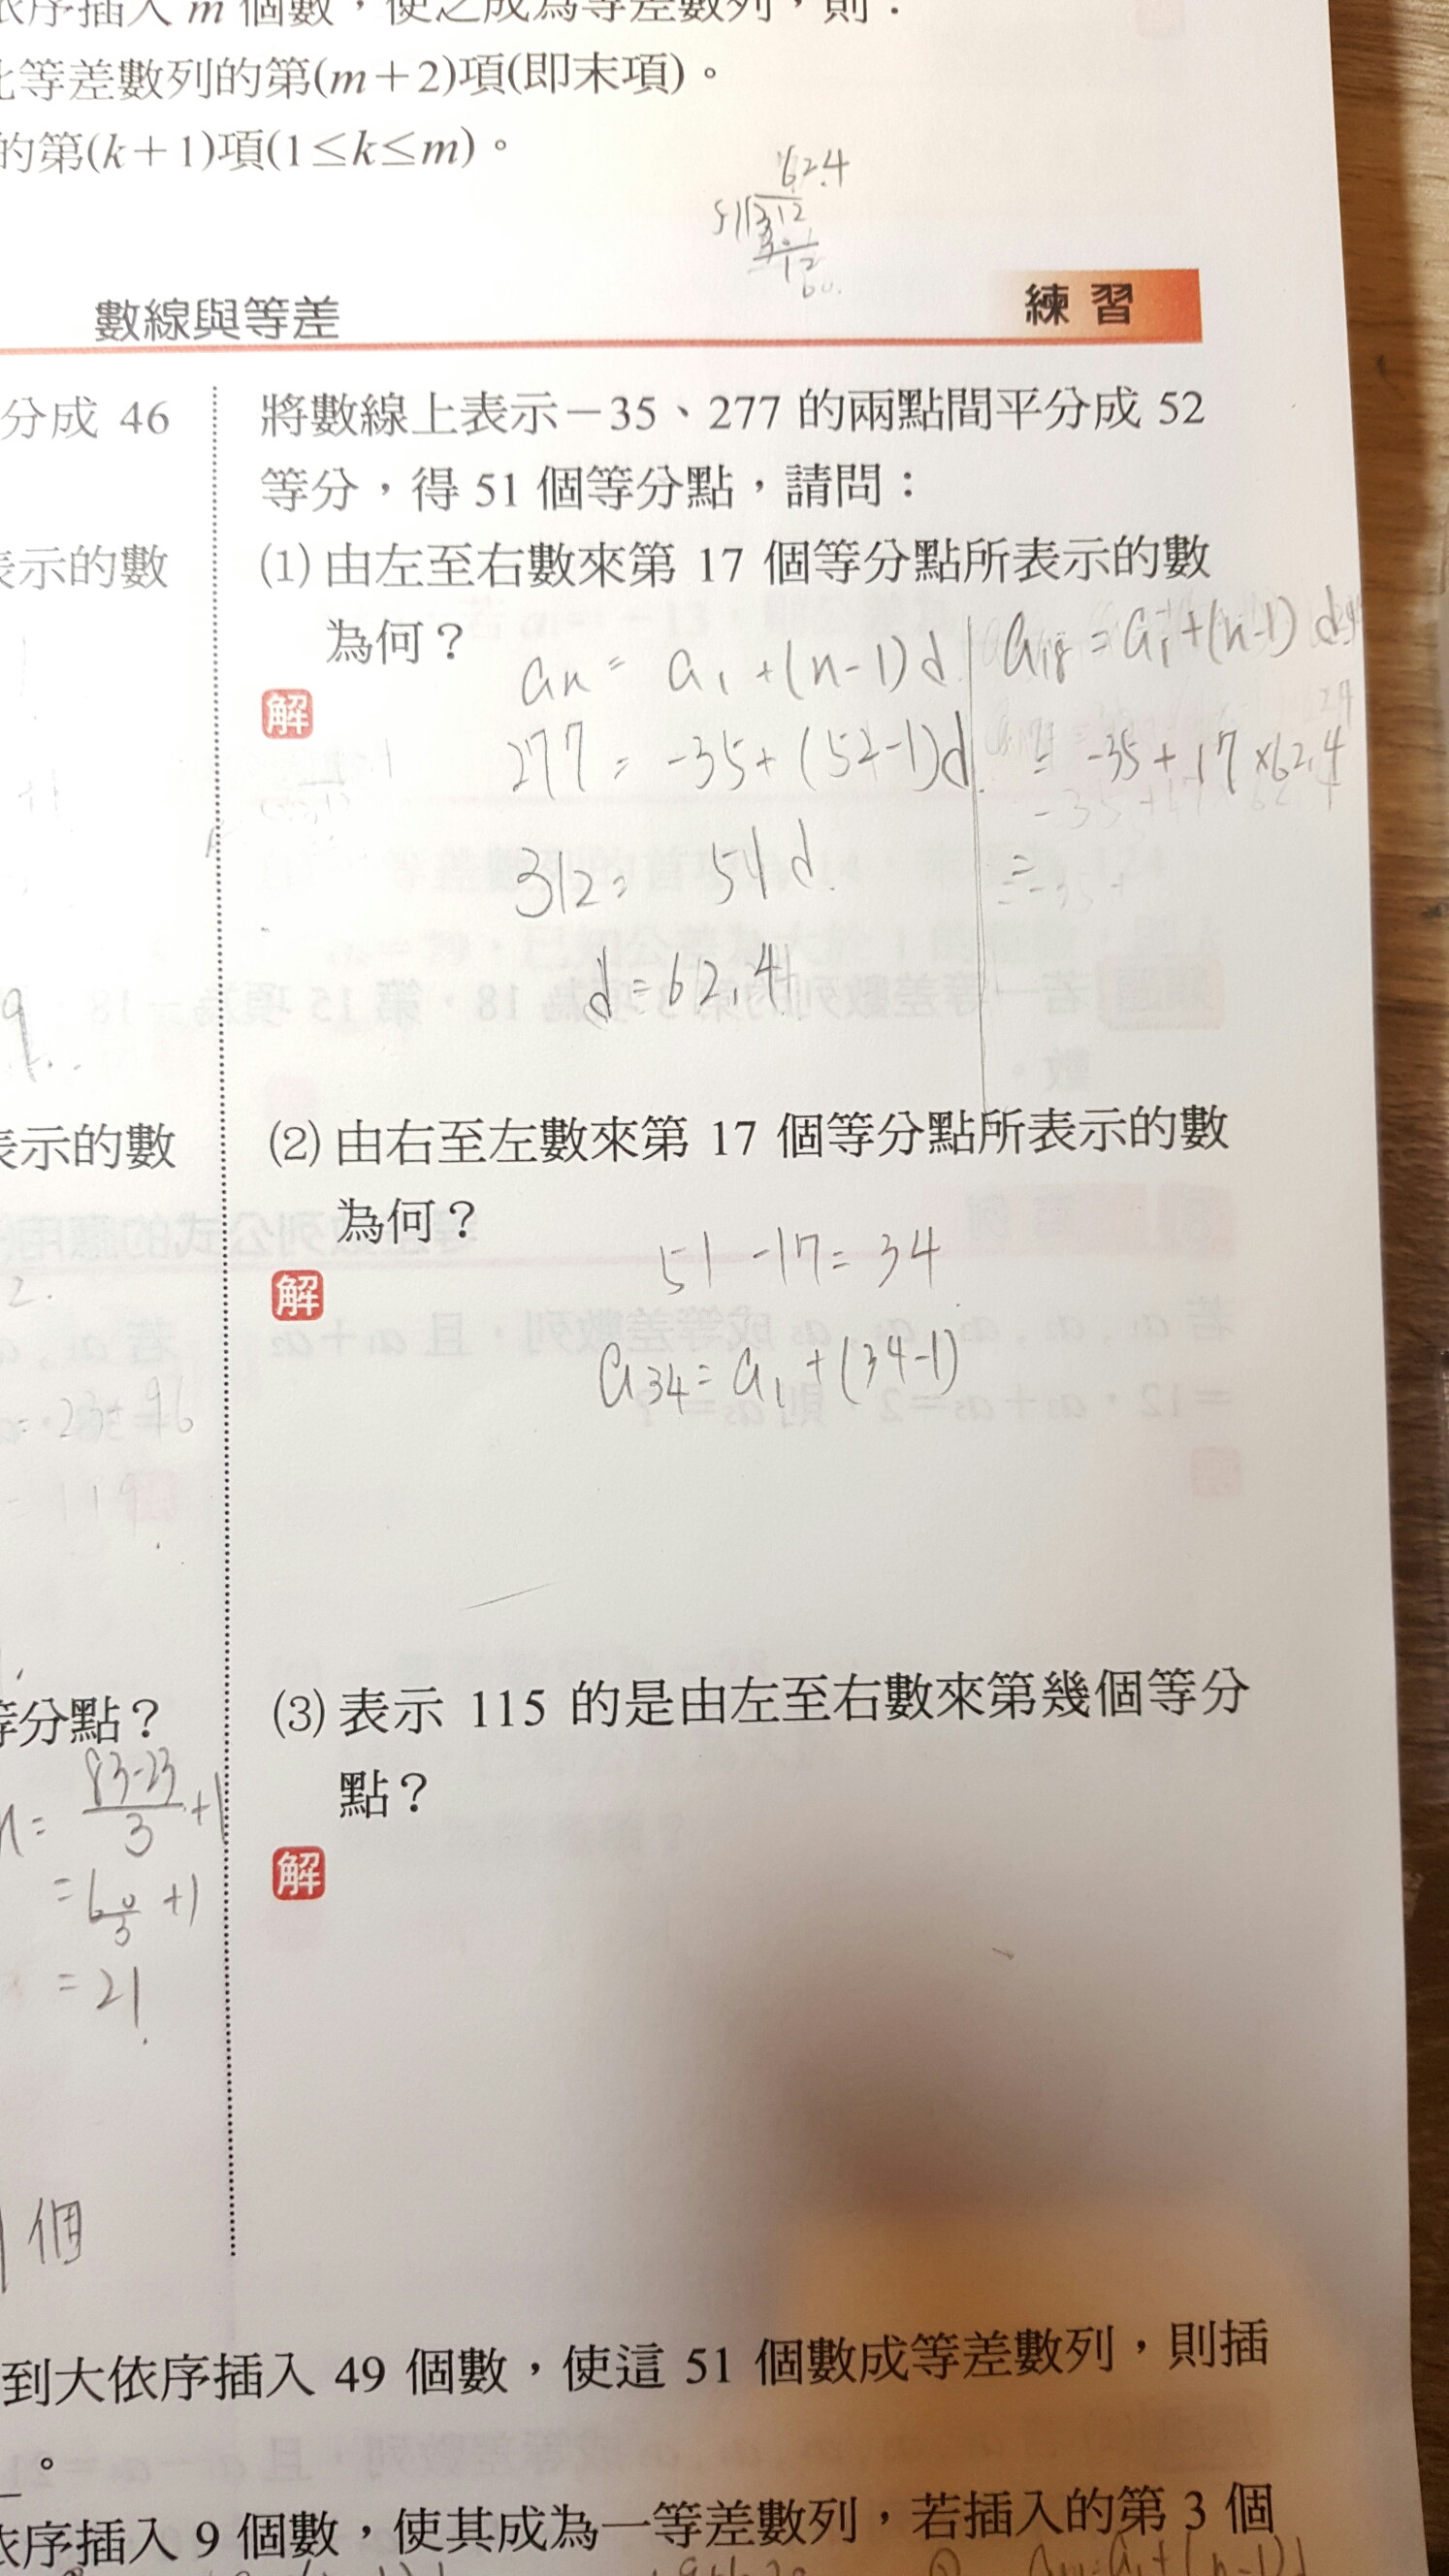 依序插入 m 個數，使之成為等差數列，則：
等差數列的第(m＋2)項(即末項)。
的第(k＋1)項(1≤k≤m)。
62.4
數線與等差
練習
分成 46
表示的數
表示的數
等分點？
83-23
3
+1
+1
= 21
個
將數線上表示－35、277 的兩點間平分成 52
等分，得 51 個等分點，請問：
(1) 由左至右數來第 17 個等分點所表示的數
為何？
解
an = a1 + (n-1)d
277 = -35 + (52-1)d
312 = 51d
d = 62.4
a18 = a1 + (n-1)d
= -35 + 17 × 62.4
=
(2) 由右至左數來第 17 個等分點所表示的數
為何？
解
51 - 17 = 34
a34 = a1 + (34-1)
(3) 表示 115 的是由左至右數來第幾個等分
點？
解
到大依序插入 49 個數，使這 51 個數成等差數列，則插
。
依序插入 9 個數，使其成為一等差數列，若插入的第 3 個